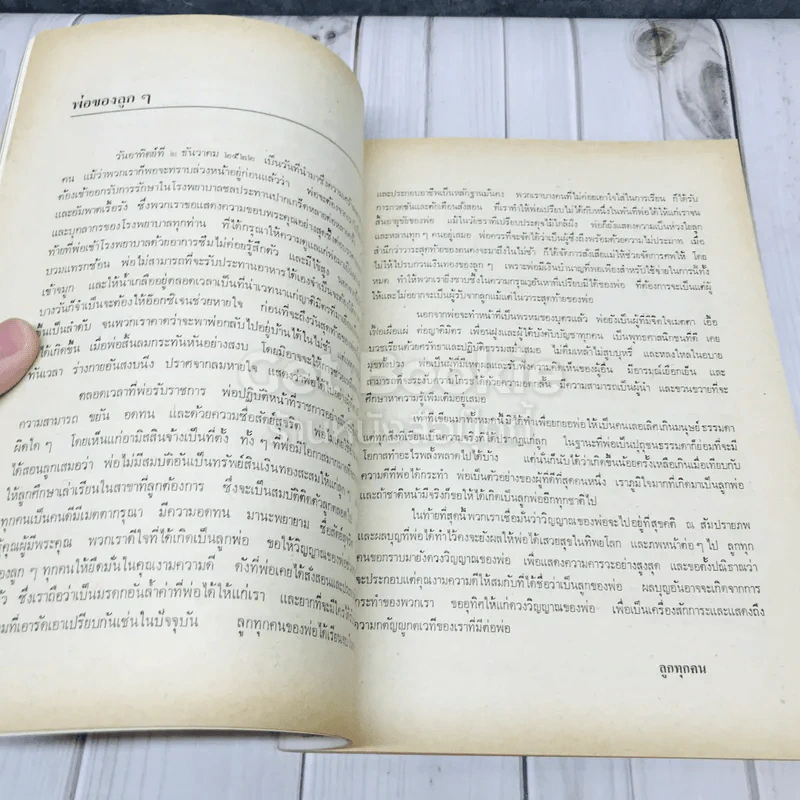 พ่อของลูก ๆ
วันอาทิตย์ที่ ๒ ธันวาคม ๒๕๒๒ เป็นวันที่นำมาซึ่งความ
คน แม้ว่าพวกเราก็พอจะทราบล่วงหน้าอยู่ก่อนแล้วว่า พ่อจะต้องจาก
ต้องเข้าออกรับการรักษาในโรงพยาบาลชลประทานปากเกร็ดหลายต่อหลาย
และอัมพาตเรื้อรัง ซึ่งพวกเราขอแสดงความขอบพระคุณอย่างสุดซึ้ง
และบุคลากรของโรงพยาบาลทุกท่าน ที่ได้กรุณาให้ความดูแลแก่พ่อ
ท้ายที่พ่อเข้าโรงพยาบาลด้วยอาการซึมไม่ค่อยรู้สึกตัว และมีไข้สูง
บวมแทรกซ้อน พ่อไม่สามารถที่จะรับประทานอาหารได้เองจำเป็นจะต้อง
เข้าจมูก และให้น้ำเกลืออยู่ตลอดเวลาเป็นที่น่าเวทนาแก่ญาติมิตรที่
บางวันก็จำเป็นจะต้องให้อ๊อกซิเจนช่วยหายใจ ก่อนที่จะถึงวันสุดท้าย
ขึ้นเป็นลำดับ จนพวกเราคาดว่าจะพาพ่อกลับไปอยู่บ้านได้ในไม่ช้า
ได้เกิดขึ้น เมื่อพ่อสิ้นลมกระทันหันอย่างสงบ โดยมิอาจจะได้
ทันเวลา ร่างกายอันสงบนิ่ง ปราศจากลมหายใจ แสดงว่า
ตลอดเวลาที่พ่อรับราชการ พ่อปฏิบัติหน้าที่ราชการอย่าง
ความสามารถ ขยัน อดทน และด้วยความซื่อสัตย์สุจริต พ่อไม่
ผิดใด ๆ โดยเห็นแก่อามิสสินจ้างเป็นที่ตั้ง ทั้ง ๆ ที่พ่อมีโอกาส
ได้สอนลูกเสมอว่า พ่อไม่มีสมบัติอันเป็นทรัพย์สินเงินทองสะสมให้แก่
ให้ลูกศึกษาเล่าเรียนในสาขาที่ลูกต้องการ ซึ่งจะเป็นสมบัติติดตัวลูกตลอด
ทุกคนเป็นคนดีมีเมตตากรุณา มีความอดทน มานะพยายาม ซื่อสัตย์
คุณผู้มีพระคุณ พวกเราดีใจที่ได้เกิดเป็นลูกพ่อ ขอให้วิญญาณของพ่อ
ลูก ๆ ทุกคนให้ยึดมั่นในคุณงามความดี ดังที่พ่อเคยได้สั่งสอน
ซึ่งเราถือว่าเป็นมรดกอันล้ำค่าที่พ่อได้ให้แก่เรา และยากที่จะมีใคร
ที่เอารัดเอาเปรียบกันเช่นในปัจจุบัน ลูกทุกคนของพ่อได้เรียน
และประกอบอาชีพเป็นหลักฐานมั่นคง พวกเราบางคนที่ไม่ค่อยเอาใจใส่ในการเรียน ก็ได้รับ
การกวดขันและตักเตือนสั่งสอน ที่เราทำให้พ่อเปรียบไม่ได้กับหนึ่งในพันที่พ่อได้ให้แก่เราจน
สิ้นอายุขัยของพ่อ แม้ในวัยชราที่เปรียบประดุจไม้ใกล้ฝั่ง พ่อก็ยังแสดงความเป็นห่วงใยลูก
และหลานทุก ๆ คนอยู่เสมอ พ่อควรที่จะจัดได้ว่าเป็นผู้ซึ่งถึงพร้อมด้วยความไม่ประมาท เมื่อ
สำนึกว่าวาระสุดท้ายของตนคงจะมาถึงในไม่ช้า ก็ได้จัดการสั่งเสียแม่ให้ช่วยจัดการศพให้ โดย
ไม่ให้ไปรบกวนเงินทองของลูก ๆ เพราะพ่อมีเงินบำนาญที่พอเพียงสำหรับใช้จ่ายในการนี้ทั้ง
หมด ทำให้พวกเรายิ่งซาบซึ้งในความกรุณาอันหาที่เปรียบมิได้ของพ่อ ที่ต้องการจะเป็นแต่ผู้
ให้และไม่อยากจะเป็นผู้รับจากลูกแม้แต่ในวาระสุดท้ายของพ่อ
นอกจากพ่อจะทำหน้าที่เป็นพรหมของบุตรแล้ว พ่อยังเป็นผู้ที่มีจิตใจเมตตา เอื้อ
เฟื้อเผื่อแผ่ ต่อญาติมิตร เพื่อนฝูงและผู้ใต้บังคับบัญชาทุกคน เป็นพุทธศาสนิกชนที่ดี เคย
บวชเรียนด้วยศรัทธาและปฏิบัติธรรมสม่ำเสมอ ไม่ดื่มเหล้าไม่สูบบุหรี่ และหลงใหลในอบาย
มุขทั้งปวง พ่อเป็นผู้ที่มีเหตุผลและรับฟังความคิดเห็นของผู้อื่น มีอารมณ์เยือกเย็น และ
สามารถที่จะระงับความโกรธได้ด้วยความอดกลั้น มีความสามารถเป็นผู้นำ และขวนขวายที่จะ
ศึกษาหาความรู้เพิ่มเติมอยู่เสมอ
เท่าที่เขียนมาทั้งหมดนี้มิได้ทำเพื่อยกยอพ่อให้เป็นคนเลอเลิศเกินมนุษย์ธรรมดา
แต่ทุกสิ่งที่เขียนเป็นความจริงที่ได้ปรากฏแก่ลูก ในฐานะที่พ่อเป็นปุถุชนธรรมดาก็ย่อมที่จะมี
โอกาสทำอะไรพลั้งพลาดไปได้บ้าง แต่นั่นก็นับได้ว่าเกิดขึ้นน้อยครั้งเหลือเกินเมื่อเทียบกับ
ความดีที่พ่อได้กระทำ พ่อเป็นตัวอย่างของผู้ที่ดีที่สุดคนหนึ่ง เราภูมิใจมากที่เกิดมาเป็นลูกพ่อ
และถ้าชาติหน้ามีจริงก็ขอให้ได้เกิดเป็นลูกพ่ออีกทุกชาติไป
ในท้ายที่สุดนี้พวกเราเชื่อมั่นว่าวิญญาณของพ่อจะไปอยู่ที่สุคติ ณ สัมปรายภพ
และผลบุญที่พ่อได้ทำไว้คงจะยังผลให้พ่อได้เสวยสุขในทิพยโลก และภพหน้าต่อ ๆ ไป ลูกทุก
คนขอกราบมายังดวงวิญญาณของพ่อ เพื่อแสดงความคารวะอย่างสูงสุด และขอตั้งปณิธานว่า
จะประกอบแต่คุณงามความดีให้สมกับที่ได้ชื่อว่าเป็นลูกของพ่อ ผลบุญอันอาจจะเกิดจากการ
กระทำของพวกเรา ขออุทิศให้แก่ดวงวิญญาณของพ่อ เพื่อเป็นเครื่องสักการะและแสดงถึง
ความกตัญญูกตเวทีของเราที่มีต่อพ่อ
ลูกทุกคน